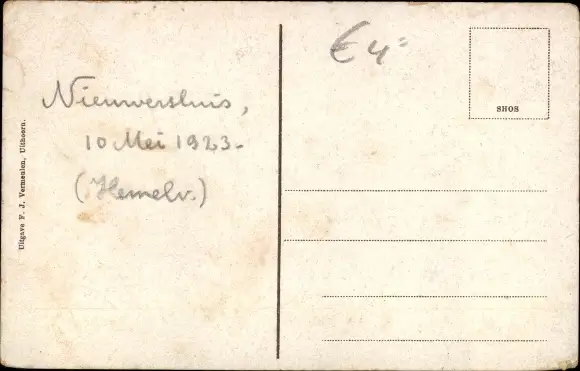 Nieuwersluis,
10 Mei 1923.
(Hemelv.)
Uitgave F. J. Vermeulen, Uithoorn.
€ 4=
SHOS